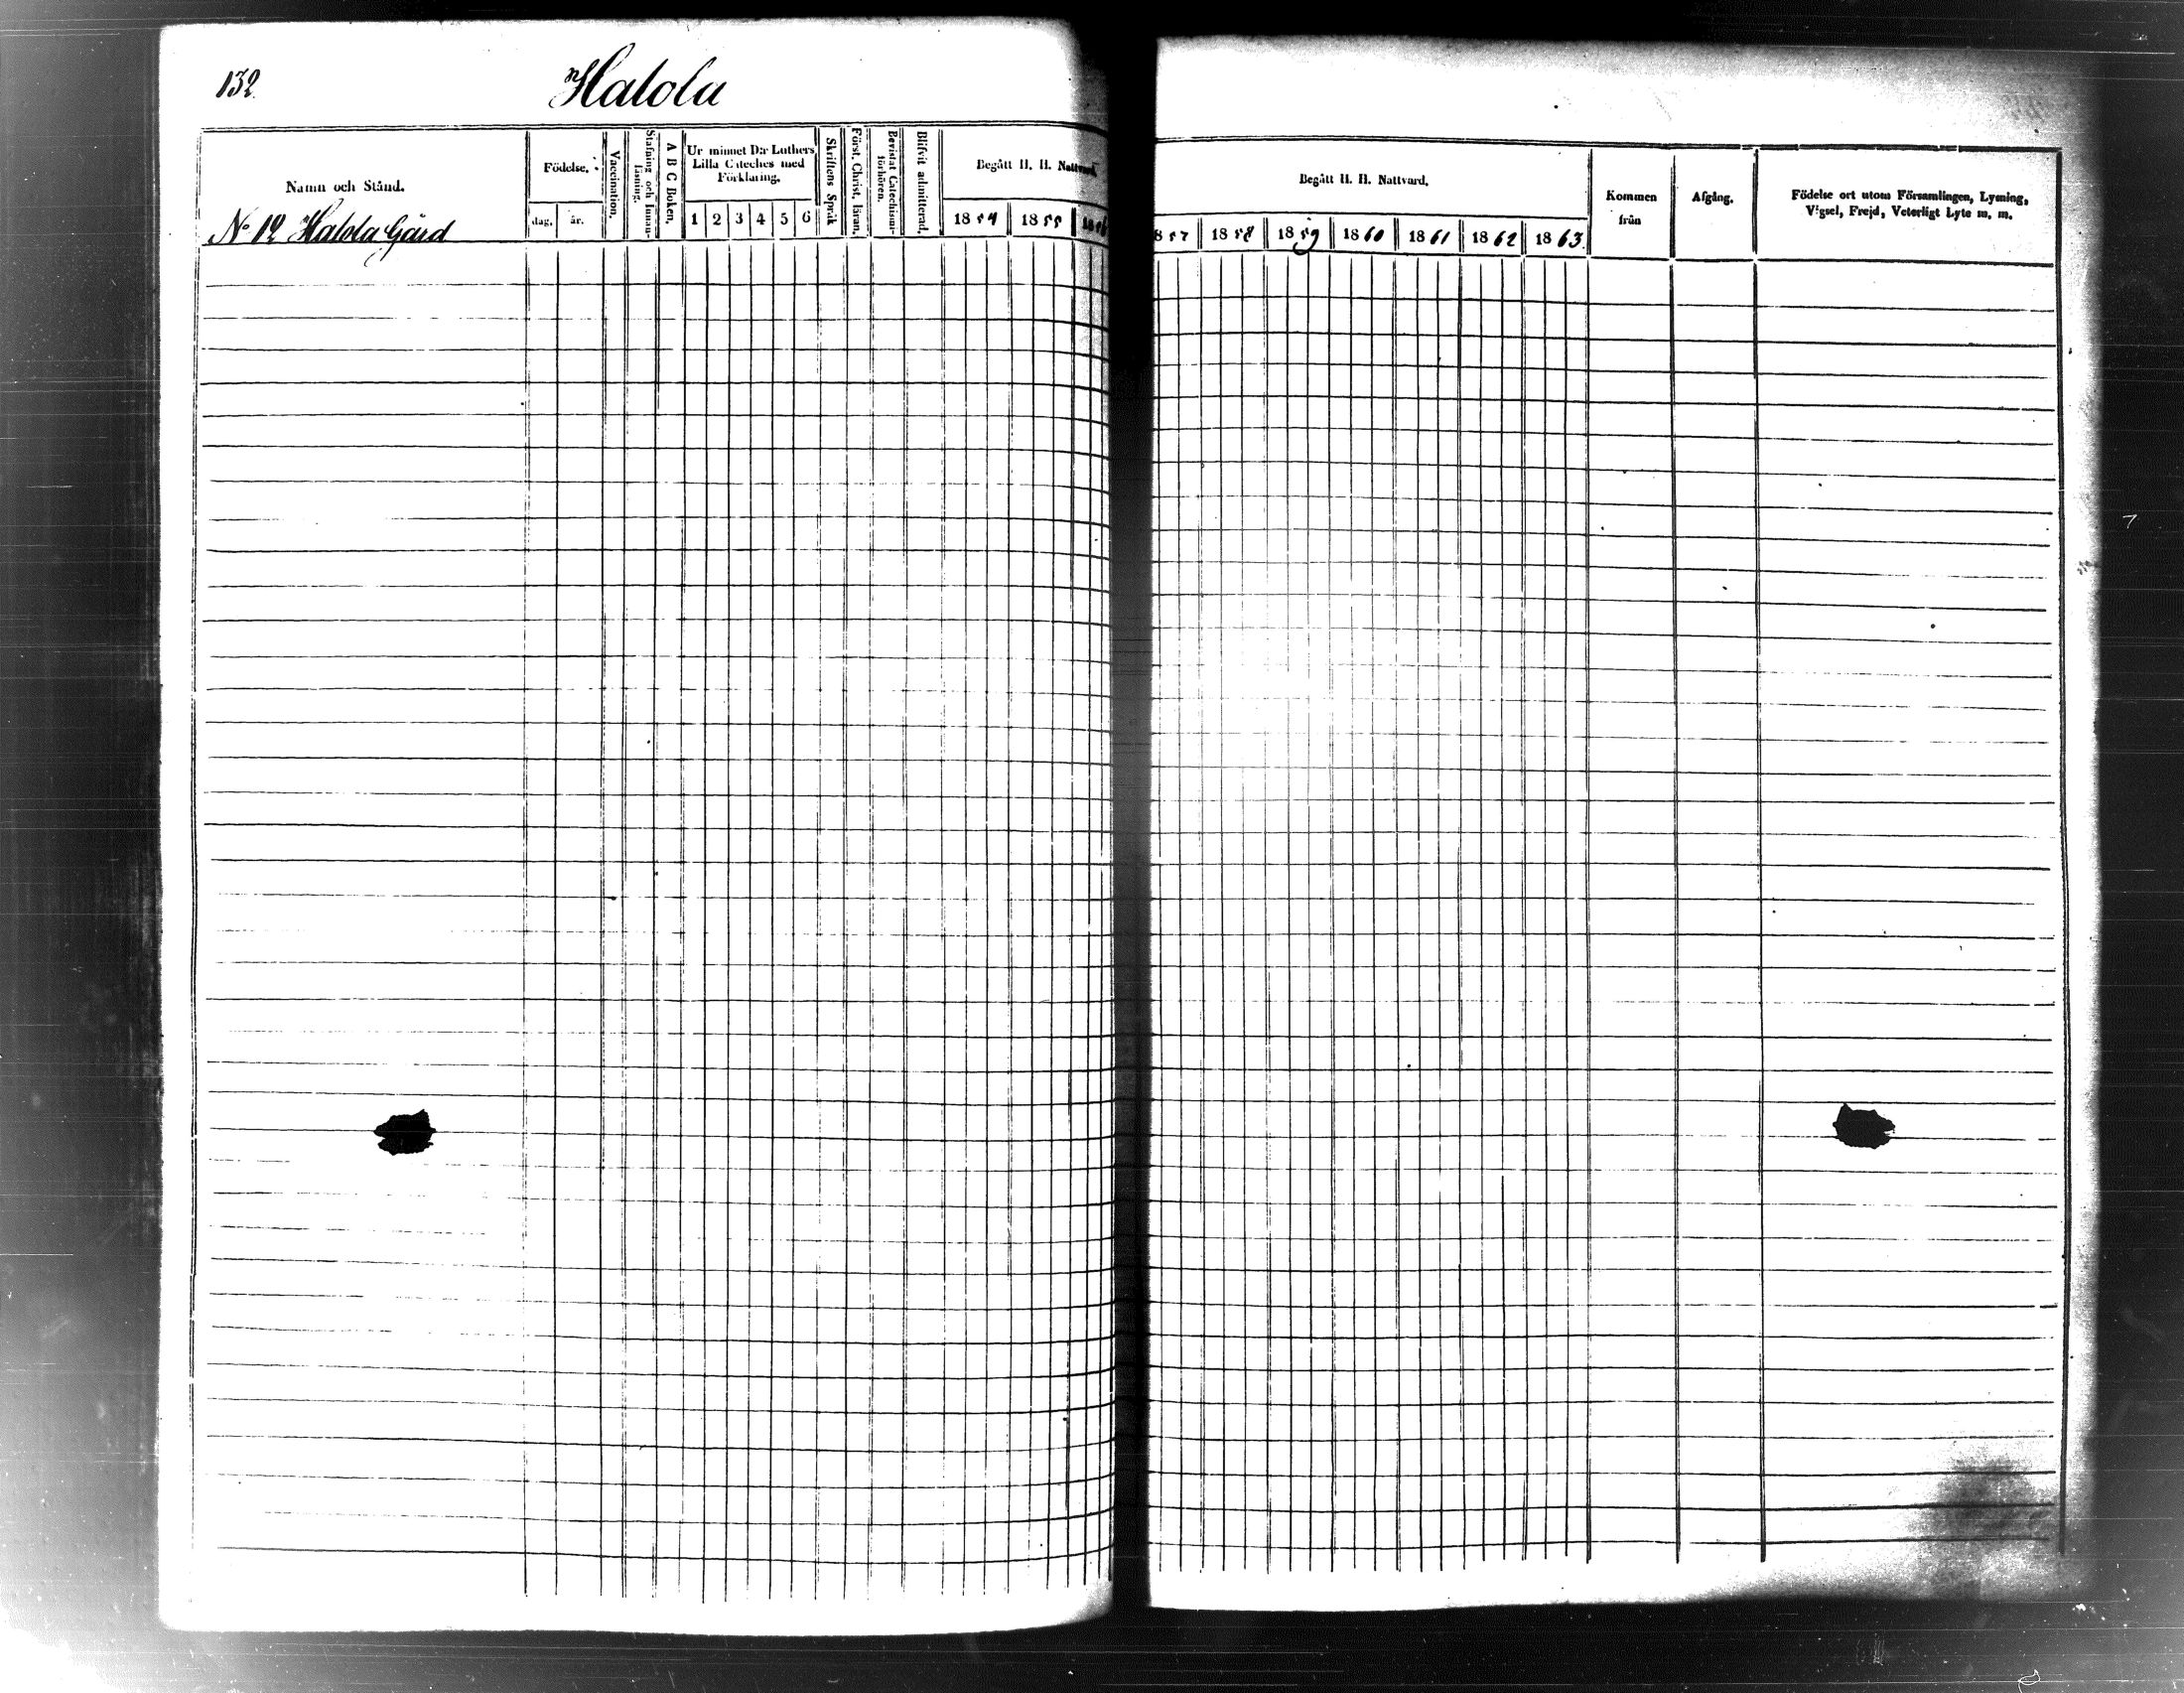 132.
Halola
Namn och Stånd.
Födelse.
dag.
år.
Vaccination.
Stafning och Innanläsning.
A B C Boken.
Ur minnet D:r Luthers
Lilla Cateches med
Förklaring.
1 2 3 4 5 6
Skriftens Språk
Först. Christ. läran.
Bevistat Catechismiförhören.
Blifvit admitterad.
Begått H. H. Nattvard
1854 1855 1856
No 12 Halola Gård
Begått H. H. Nattvard.
857 1858 1859 1860 1861 1862 1863.
Kommen
från
Afgång.
Födelse ort utom Församlingen, Lysning,
Vigsel, Frejd, Veterligt Lyte m. m.